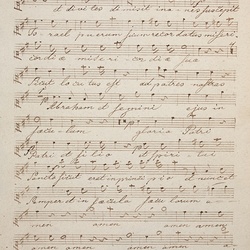 et divites dimisit ina nes suscepit
Israel puerum suum recordatus miseri
cordiæ misericordiæ suæ
Sicut locutus est ad patres nostros
Abraham et semini ejus in
sæculum gloria Patri
Patri et Filio et Spiritui
Sicut erat in principio et nunc et
semper et in sæcula sæculorum a
men amen amen
amen amen amen